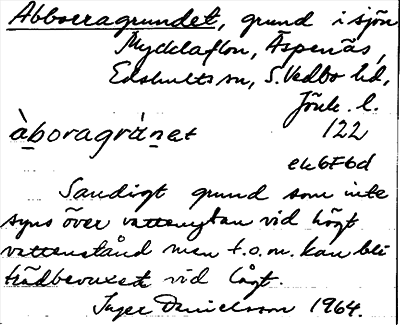 Abboragrundet, grund i sjön
Mycklaflon, Äspenäs,
Edshults sn, S. Vedbo hd,
Jönk. l.
àboragránet 122
ek6F6d
Sandigt grund som inte
syns över vattenytan vid högt
vattenstånd men t.o.m. kan bli
trädbevuxet vid lågt.
Inger Danielsson 1964.